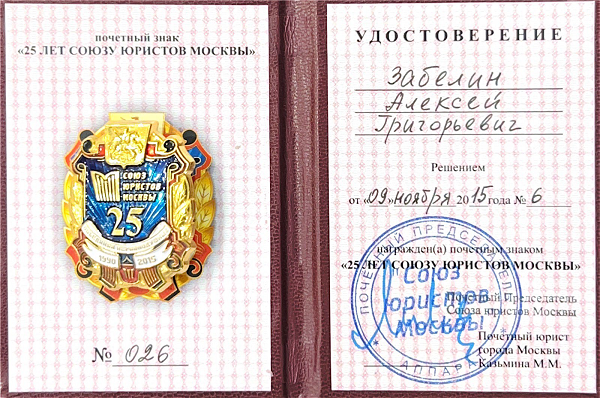 почетный знак
«25 ЛЕТ СОЮЗУ ЮРИСТОВ МОСКВЫ»
СОЮЗ
ЮРИСТОВ
МОСКВЫ
25
1990 2015
№ 026
УДОСТОВЕРЕНИЕ
Забелин
Алексей
Григорьевич
Решением
от «09» ноября 2015 года № 6
награжден(а) почетным знаком
«25 ЛЕТ СОЮЗУ ЮРИСТОВ МОСКВЫ»
Почетный Председатель
Союза юристов Москвы
Почётный юрист
города Москвы
Казьмина М.М.
ПОЧЕТНЫЙ ПРЕДСЕДАТЕЛЬ
Союз
юристов
Москвы
АППАРАТ